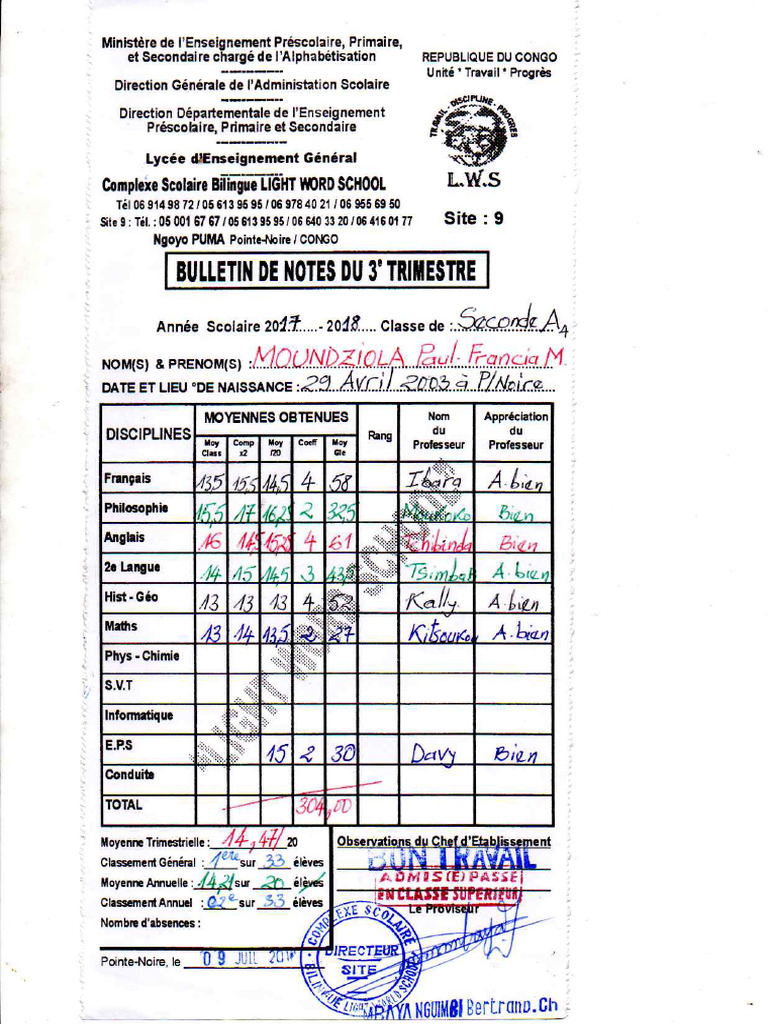 Ministère de l'Enseignement Préscolaire, Primaire,
et Secondaire chargé de l'Alphabétisation
Direction Générale de l'Administation Scolaire
Direction Départementale de l'Enseignement
Préscolaire, Primaire et Secondaire
Lycée d'Enseignement Général
Complexe Scolaire Bilingue LIGHT WORD SCHOOL
Tél 06 914 98 72 / 05 613 95 95 / 06 978 40 21 / 06 955 69 50
Site 9 : Tél. : 05 001 67 67 / 05 613 95 95 / 06 640 33 20 / 06 416 01 77
Ngoyo PUMA Pointe-Noire / CONGO
REPUBLIQUE DU CONGO
Unité * Travail * Progrès
TRAVAIL - DISCIPLINE - PROGRES
L.W.S
Site : 9
BULLETIN DE NOTES DU 3e TRIMESTRE
Année Scolaire 2017 - 2018 Classe de : Seconde A4
NOM(S) & PRENOM(S) : MOUNDZIOLA Paul-Francia M.
DATE ET LIEU °DE NAISSANCE : 29 Avril 2003 à P/Noire
DISCIPLINES MOYENNES OBTENUES Rang Nom du Professeur Appréciation du Professeur
Moy Class Comp x2 Moy /20 Coeff Moy Gle
Français 13,5 15,5 14,5 4 58 Ibara A.bien
Philosophie 15,5 17 16,25 2 32,5 Moukoko Bien
Anglais 16 14,5 15,25 4 61 Tchibinda Bien
2e Langue 14 15 14,5 3 43,5 Tsimbah A.bien
Hist - Géo 13 13 13 4 52 Kally A.bien
Maths 13 14 13,5 2 27 Kitsoukou A.bien
Phys - Chimie
S.V.T
Informatique
E.P.S 15 2 30 Davy Bien
Conduite
TOTAL 304,00
LIGHT WORD SCHOOL
Moyenne Trimestrielle : 14,47/ 20
Classement Général : 1ère sur 33 élèves
Moyenne Annuelle : 14,21 sur 20 élèves
Classement Annuel : 02e sur 33 élèves
Nombre d'absences :
Observations du Chef d'Etablissement
BON TRAVAIL
ADMIS(E) PASSE
EN CLASSE SUPERIEUR
Le Proviseur
Pointe-Noire, le 09 JUIL 201
COMPLEXE SCOLAIRE
DIRECTEUR
SITE
BILINGUE LIGHT WORLD SCHOOL
MBAYA NGUIMBI Bertrand.Ch